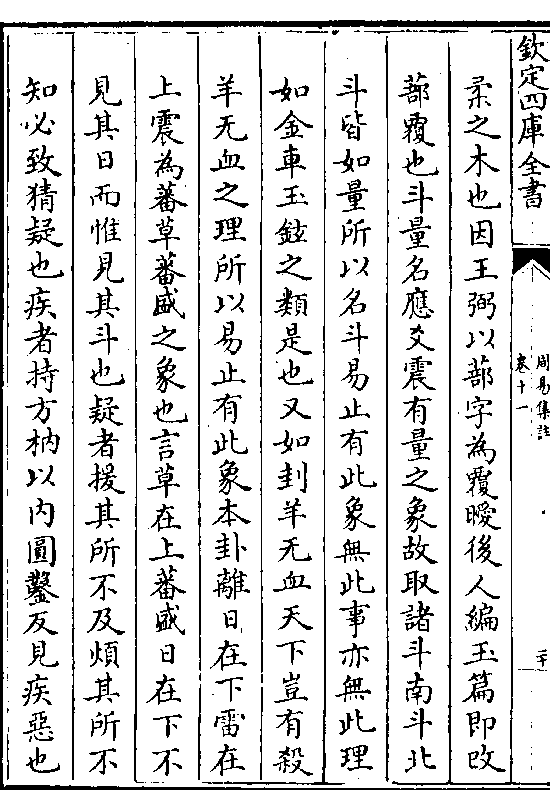 欽定四庫全書
周易集註
卷十一
二十
柔之木也因王弼以蔀字為覆曖後人編玉篇即改
蔀覆也斗量名應爻震有量之象故取諸斗南斗北
斗皆如量所以名斗易止有此象無此事亦無此理
如金車玉鉉之類是也又如刲羊无血天下豈有殺
羊无血之理所以易止有此象本卦離日在下雷在
上震為蕃草蕃盛之象也言草在上蕃盛日在下不
見其日而惟見其斗也疑者援其所不及煩其所不
知必致猜疑也疾者持方枘以内圓鑿反見疾惡也